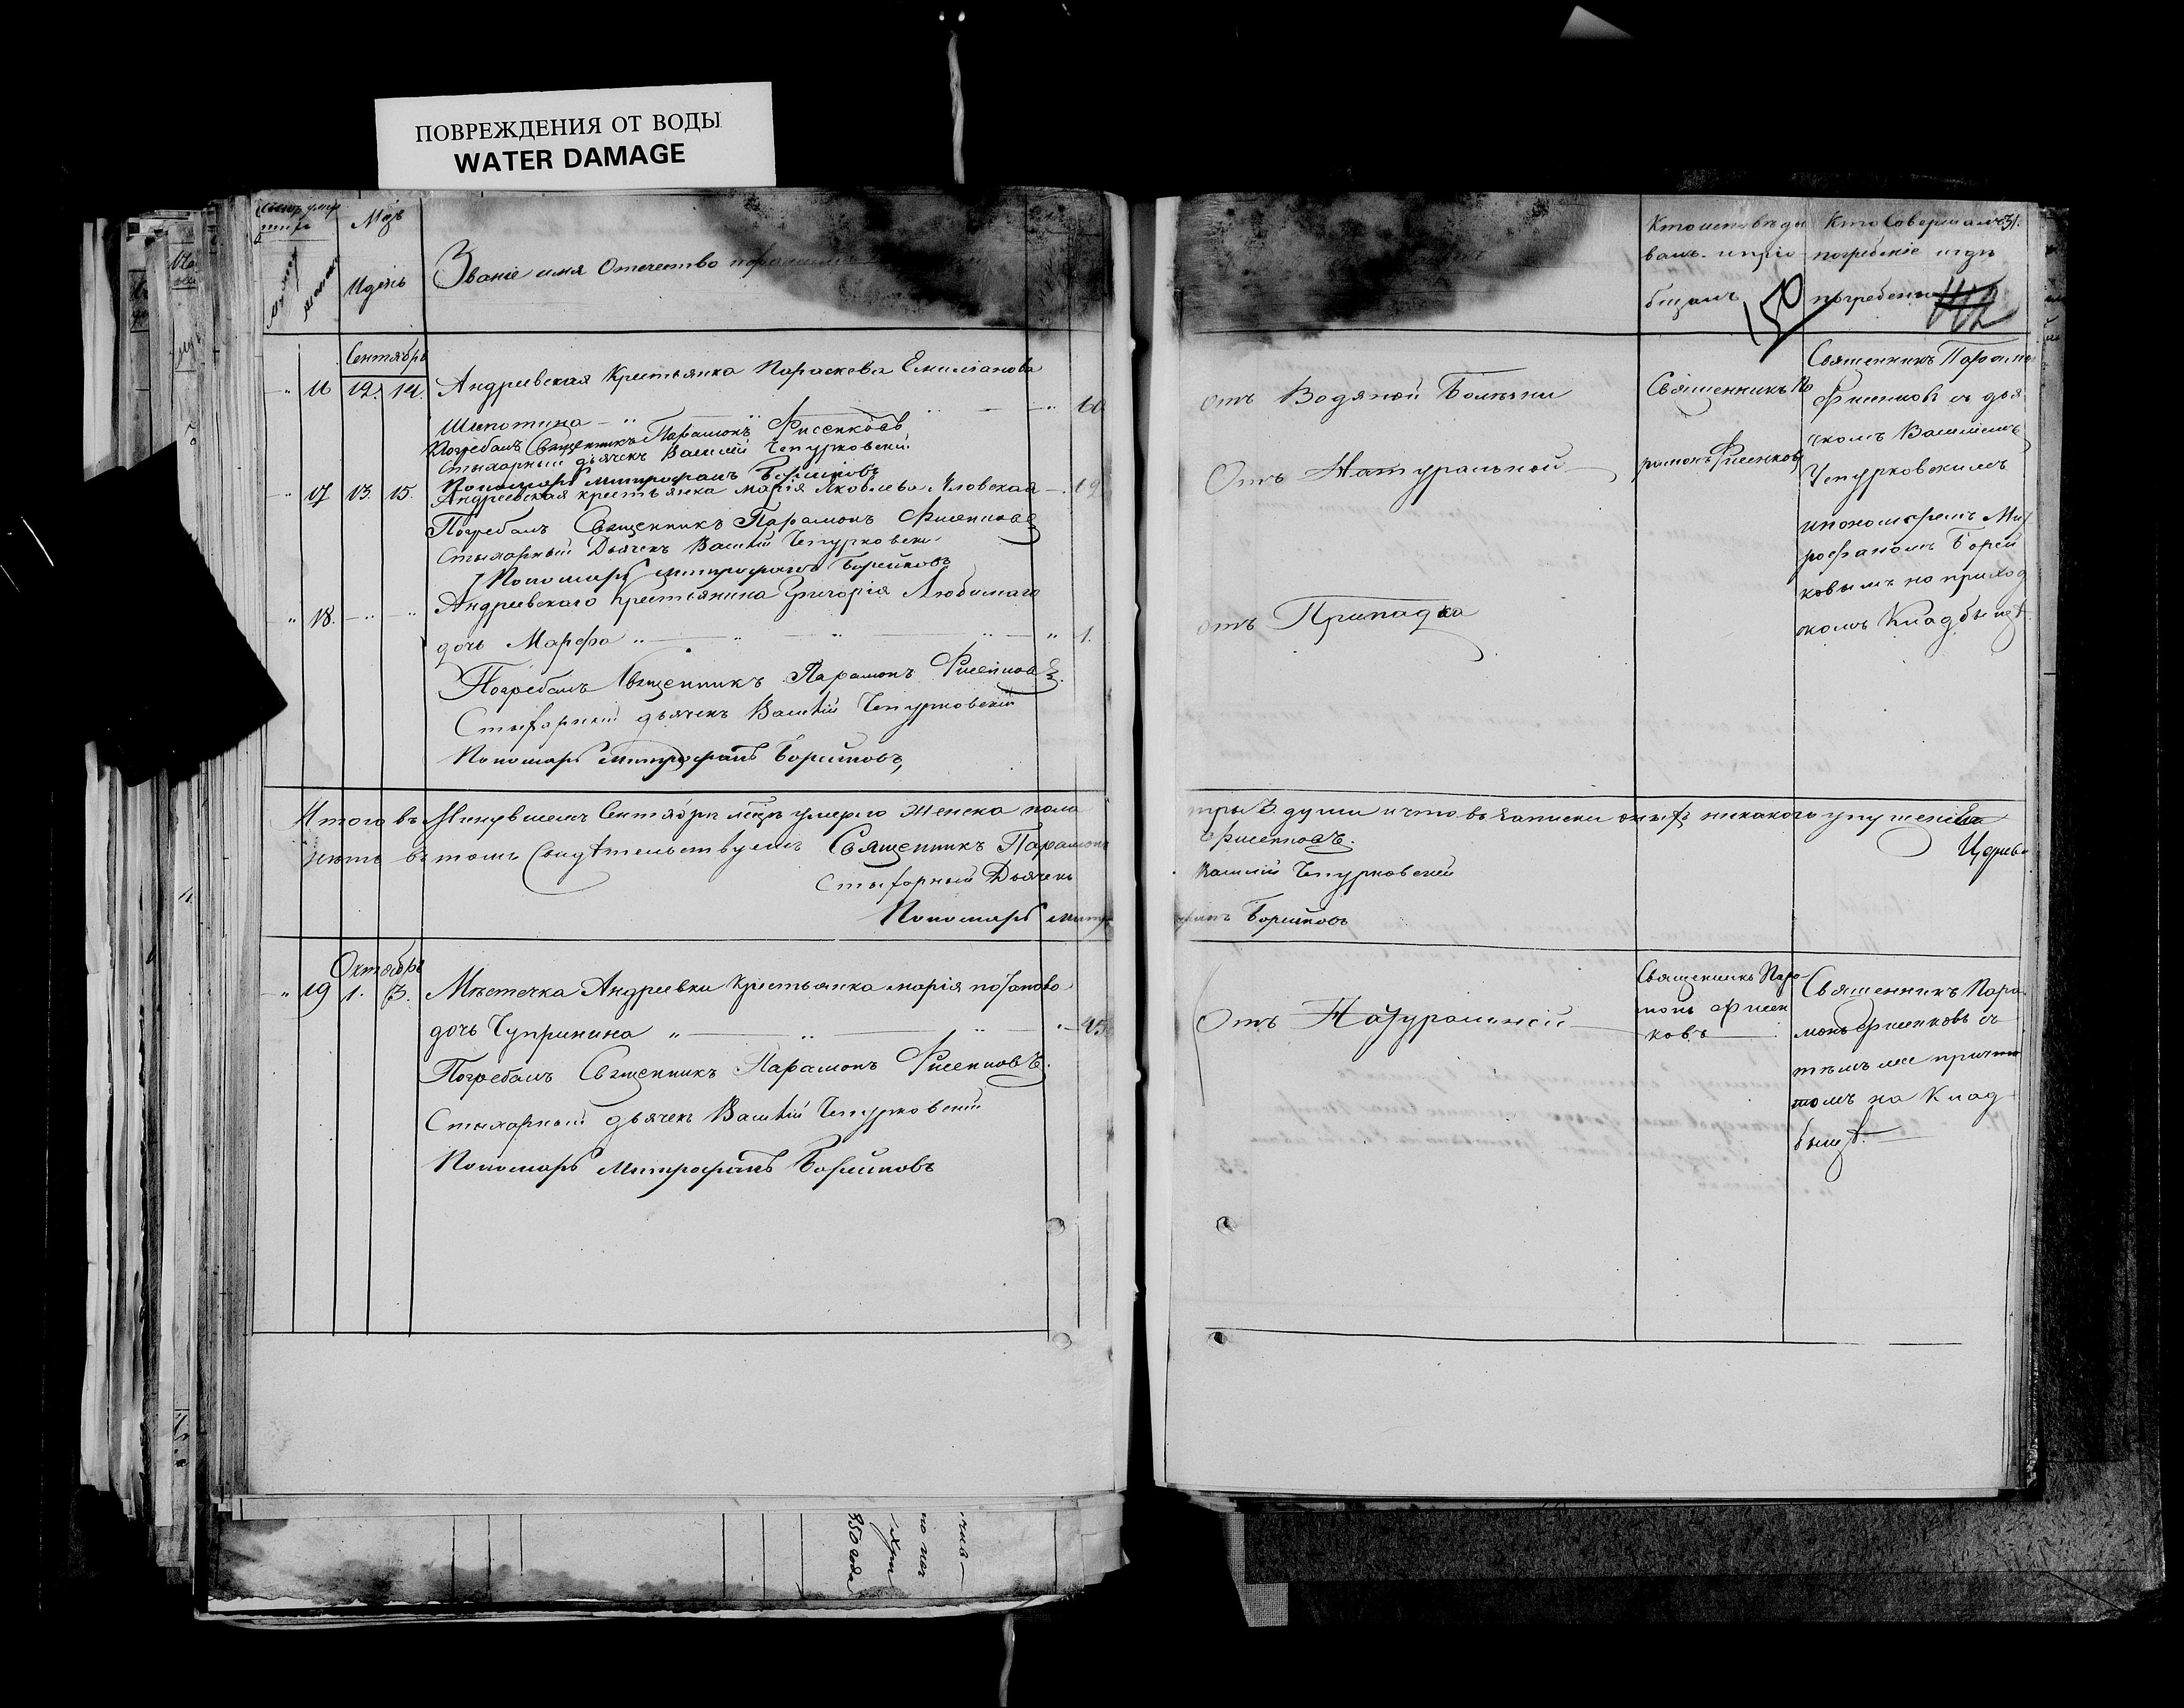 ПОВРЕЖДЕНИЯ ОТ ВОДЫ
WATER DAMAGE
Мцъ
И день
Званіе имя Отечество
Сентябрь
16 12. 14. Андреевская Крестьянка Параскева Емиліанова
Шепотина 60
Погребалъ Священникъ Парамонъ Фисенковъ
Стыхарный дьячекъ Василій Чепурковскій
Пономарь Митрофанъ Борейковъ
17 13. 15. Андреевская крестьянка Марія Яковлева Яловская
Погребалъ Священникъ Парамонъ Фисенковъ
Стыхарный Дьячекъ Василій Чепурковскій
Пономарь Митрофанъ Борейковъ
18. Андреевскаго крестьянина Григорія Любимаго
дочь Марфа 1.
Погребалъ Священникъ Парамонъ Фисенковъ
Стыхарный дьячекъ Василій Чепурковскій
Пономарь Митрофанъ Борейковъ,
Итого въ Минувшемъ Сентябрѣ мцѣ умерло женска пола
нѣтъ въ томъ Свидѣтельствуемъ Священникъ Парамонъ
Стыхарный Дьячекъ
Пономарь Митро
Октябрь
19 1. 3. Мѣстечка Андреевки Крестьянка Марія Потапова
дочь Чупринина 45
Погребалъ Священникъ Парамонъ Фисенковъ.
Стыхарный дьячекъ Василій Чепурковскій
Пономарь Митрофанъ Борейковъ
950 года
Кто исповѣды
валъ и прiо
бщалъ
150
Кто Совершалъ
погребеніе и гдѣ
погребены
31.
отъ Водяной Болѣзни
Отъ Натуральной
отъ Припадка
Священникъ Па
рамонъ Фисенковъ
Священникъ Парамо
Фисенковъ съ дья
чкомъ Василіемъ
Чепурковскимъ
и пономаремъ Мит
рофаномъ Борей
ковымъ на приход
скомъ Кладбищѣ
три 3. души и что въ записки оныхъ никакого упущенія
Фисенковъ.
Василій Чепурковскій
фанъ Борейковъ
Отъ Натуральной
Священникъ Пара
монъ Фисен
ковъ
Священникъ Пара
монъ Фисенковъ съ
тѣмъ же причто
томъ на Клад
бищѣ.